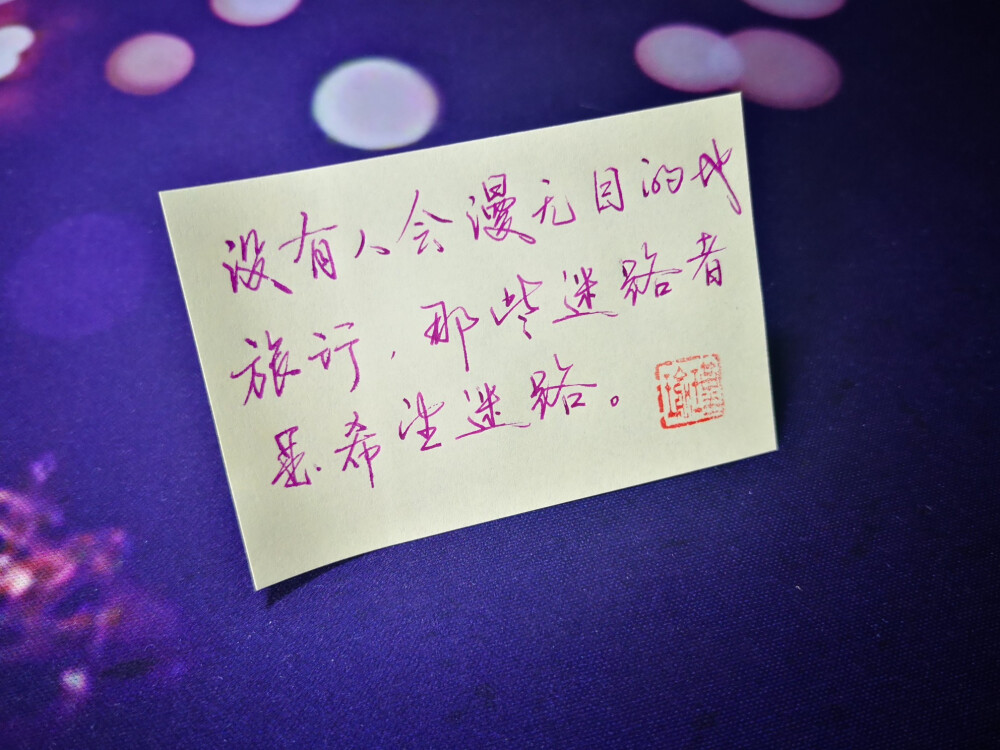 没有人会漫无目的地
旅行，那些迷路者
是希望迷路。